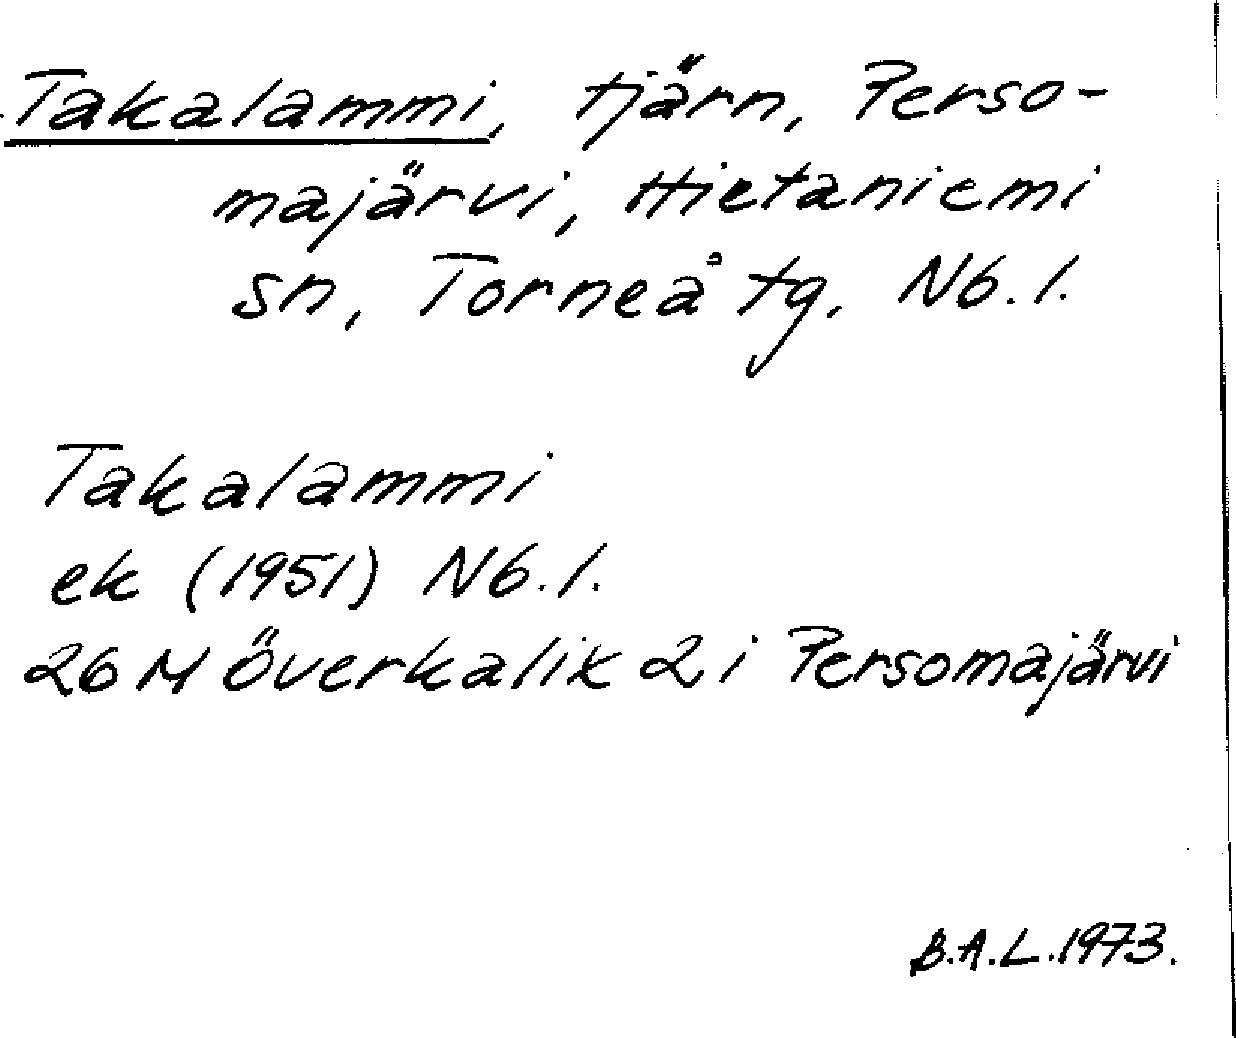 Takalammi, tjärn, Perso-
majärvi, Hietaniemi
sn, Torneå tg. Nb. l.
Takalammi
ek (1951) Nb. l.
26 M Överkalix 2 i Persomajärvi
B.A.L. 1973.